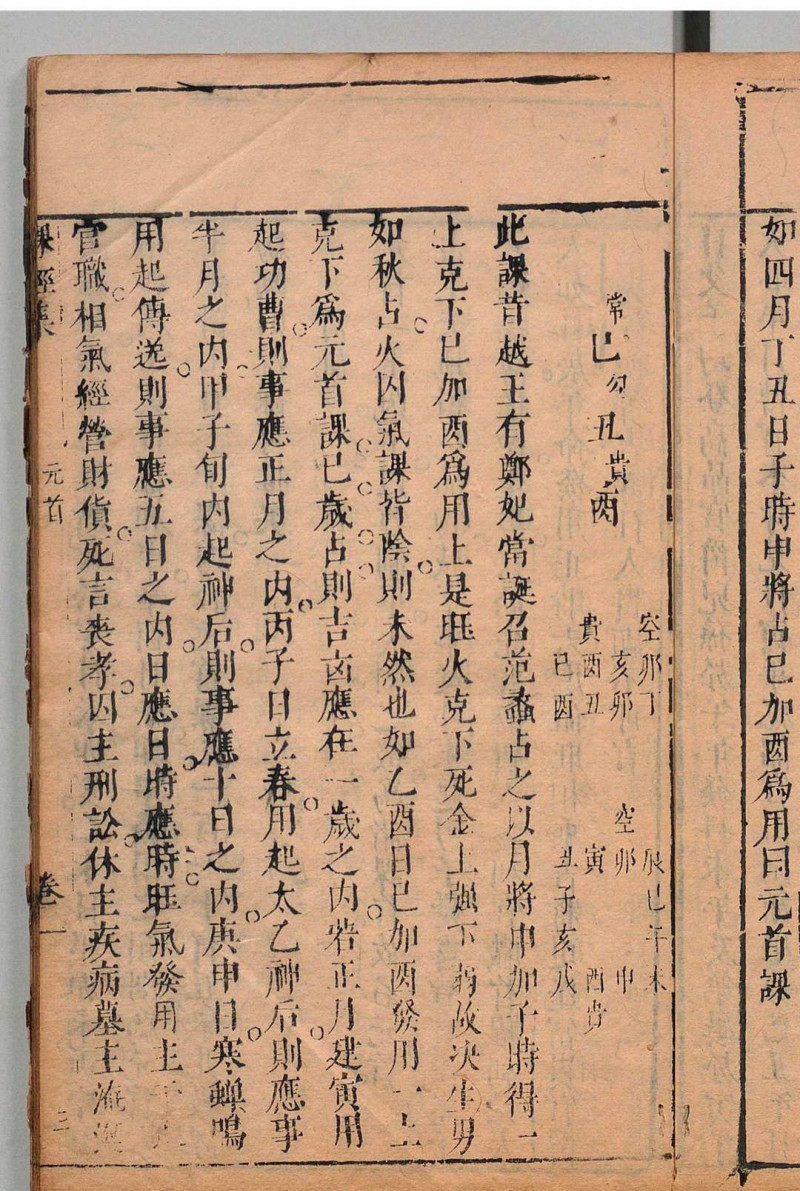 如四月丁丑日子時申將占巳加酉為用曰元首課
空卯丁 辰巳午未
亥卯 空卯 申
貴酉丑 寅 酉貴
巳酉 丑子亥戌
常巳勾丑貴酉
此課昔越王有鄭妃當誕召范蠡占之以月將申加子時得一
上克下巳加酉為用上是旺火克下死金上強下弱故决生男
如秋占火囚氣課皆陰則未然也如乙酉日巳加酉發用一上
克下為元首課巳歲占則吉凶應在一歲之内若正月建寅用
起功曹則事應正月之内丙子日立春用起太乙神后則應事
半月之内甲子旬内起神后則事應十日之内庚申日寒蟬鳴
用起傳送則事應五日之内日應日時應時旺氣發用主
官職相氣經營財貨死言喪孝囚主刑訟休主疾病墓主淹
課經集 元首 卷一 三